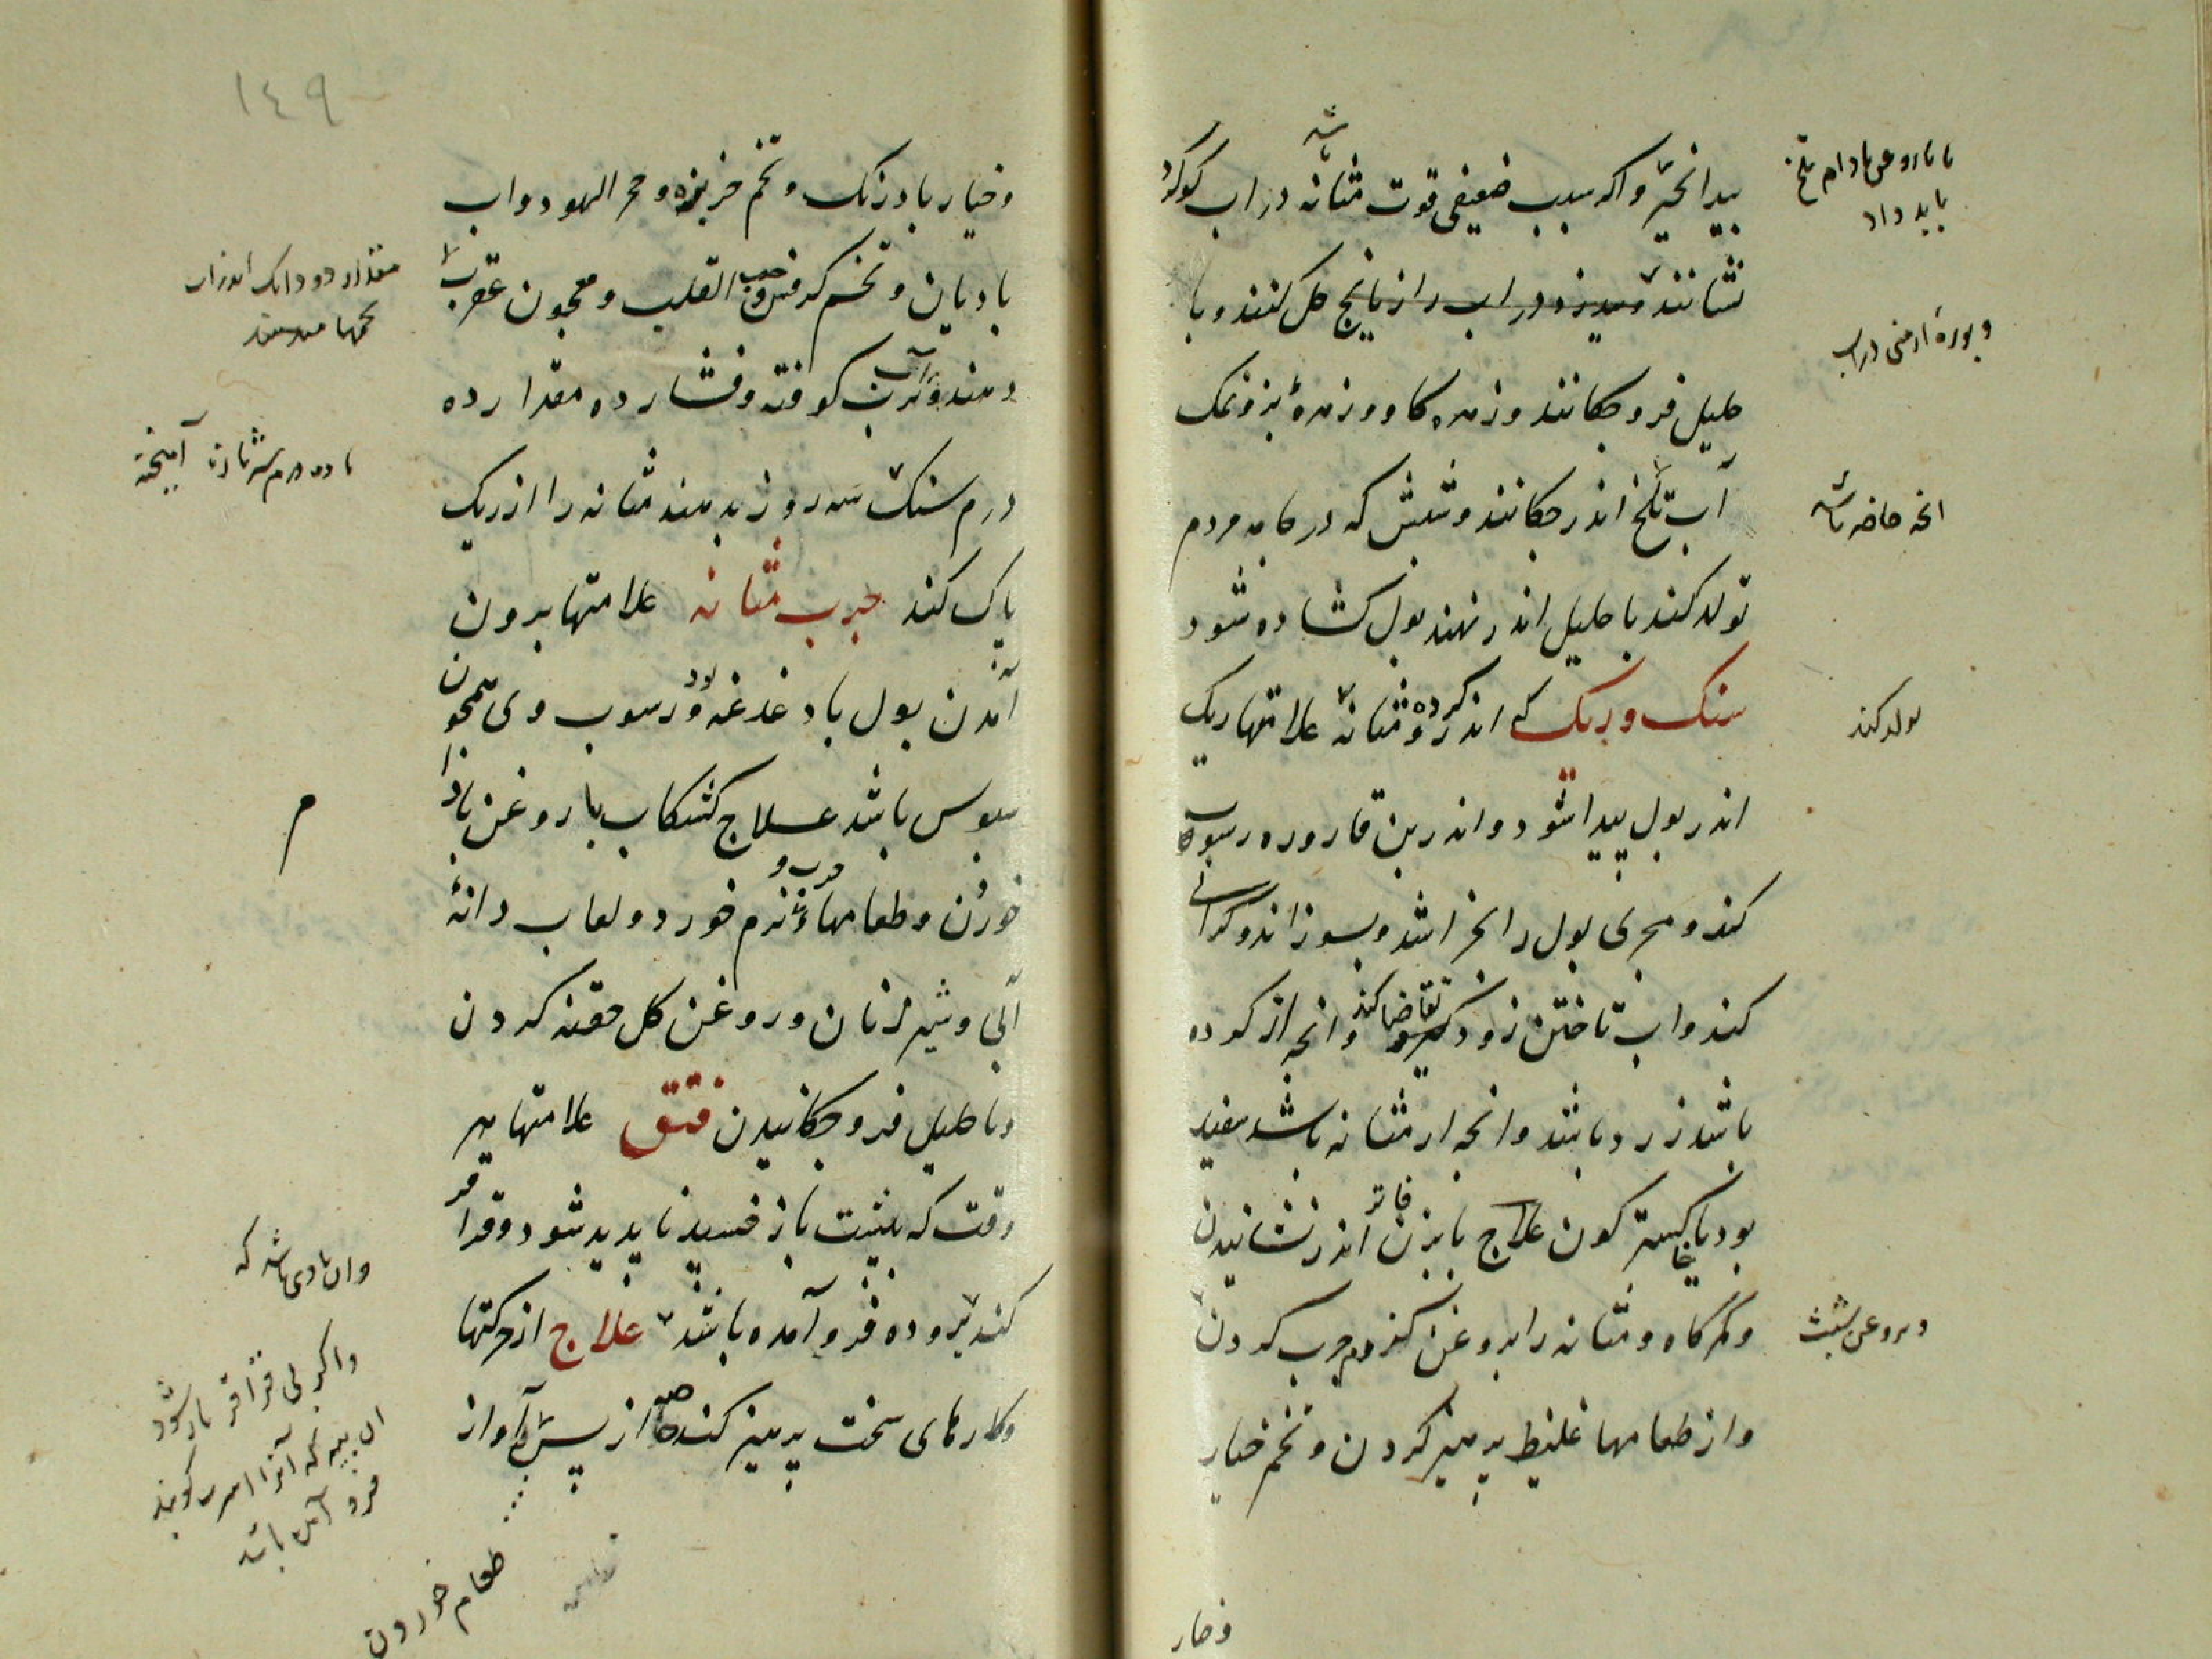 بید انجیر و اگر سبب ضعیفی قوت مثانه باشد در اب کوکرد
نشانند در اب رازیانج حل کنند و با
حلیل فرو چکانند و زهره کاو و زهرهٔ بز و نمک
آب تلخ اندر چکانند و شپش که در جامه مردم
تولد کند باحلیل اندر نهند بول کشاده شود
سنک و ریک که اندر کرده و مثانه علامتها ریک
اندر بول پیدا شود و اندر بن قاروره رسوب
کند و مجری بول را بخراشد و بسوزاند و کرانی
کند و اب تاختن زود تقاضا کند و انچه از کرده
باشد زرد باشد و انچه از مثانه باشد سفید
بود یا خاکستر کون علاج با بزن فاتر اندر نشانیدن
و کمرکاه و مثانه را بروغن کژدم چرب کردن
و از طعامها غلیظ پرهیز کردن و تخم خیار
و خیار
با روغن بادام تلخ
باید داد
و بورهٔ ارمنی در اب
انچه حاضر باشد
تولد کند
و بروغن شبث
١٤٩
و خیار بادرنک و تخم خربزه و حجر الیهود و اب
بادیان و تخم کرفس و حب القلب و معجون عقرب
دهند و آب ترب کوفته و فشارده مقدار ده
درم سنک سه روز بدهند مثانه را از ریک
پاک کند جرب مثانه علامتها برون
آمدن بول با دغدغه بود و رسوب وی همچون
سبوس باشد علاج کشکاب با روغن بادام
خوردن و طعامهاء چرب و نرم خورد و لعاب دانهٔ
آبی و شیر زنان و روغن کل حقنه کردن
و باحلیل فرو چکانیدن فتق علامتها هر
وقت که به پشت باز خسپد ناپدید شود و قراقر
کند روده فرو آمده باشد علاج از حرکتها
و کارهای سخت پرهیز کند خاصه از پس و آواز
مقدار دو دانک اندر اب
تخمها میدهند
با ده درم آمیخته
م
وان بادی باشد که
واکر بی قراقر باز شود
ان پیه که آنرا کویند
فرود آمده باشد
طعام خوردن